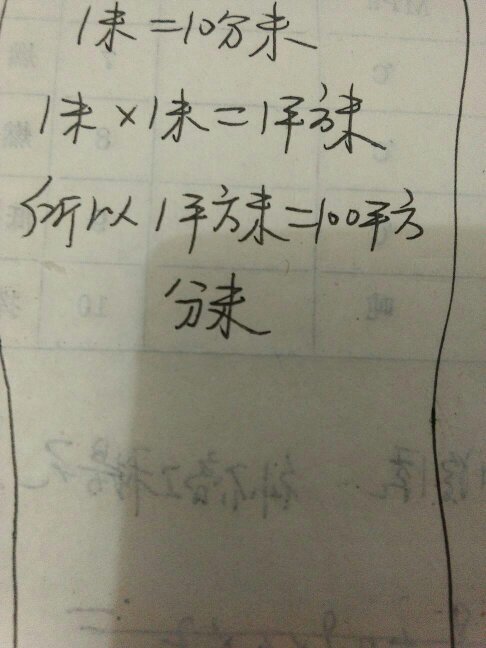 1米=10分米
1米×1米=1平方米
所以1平方米=100平方
分米